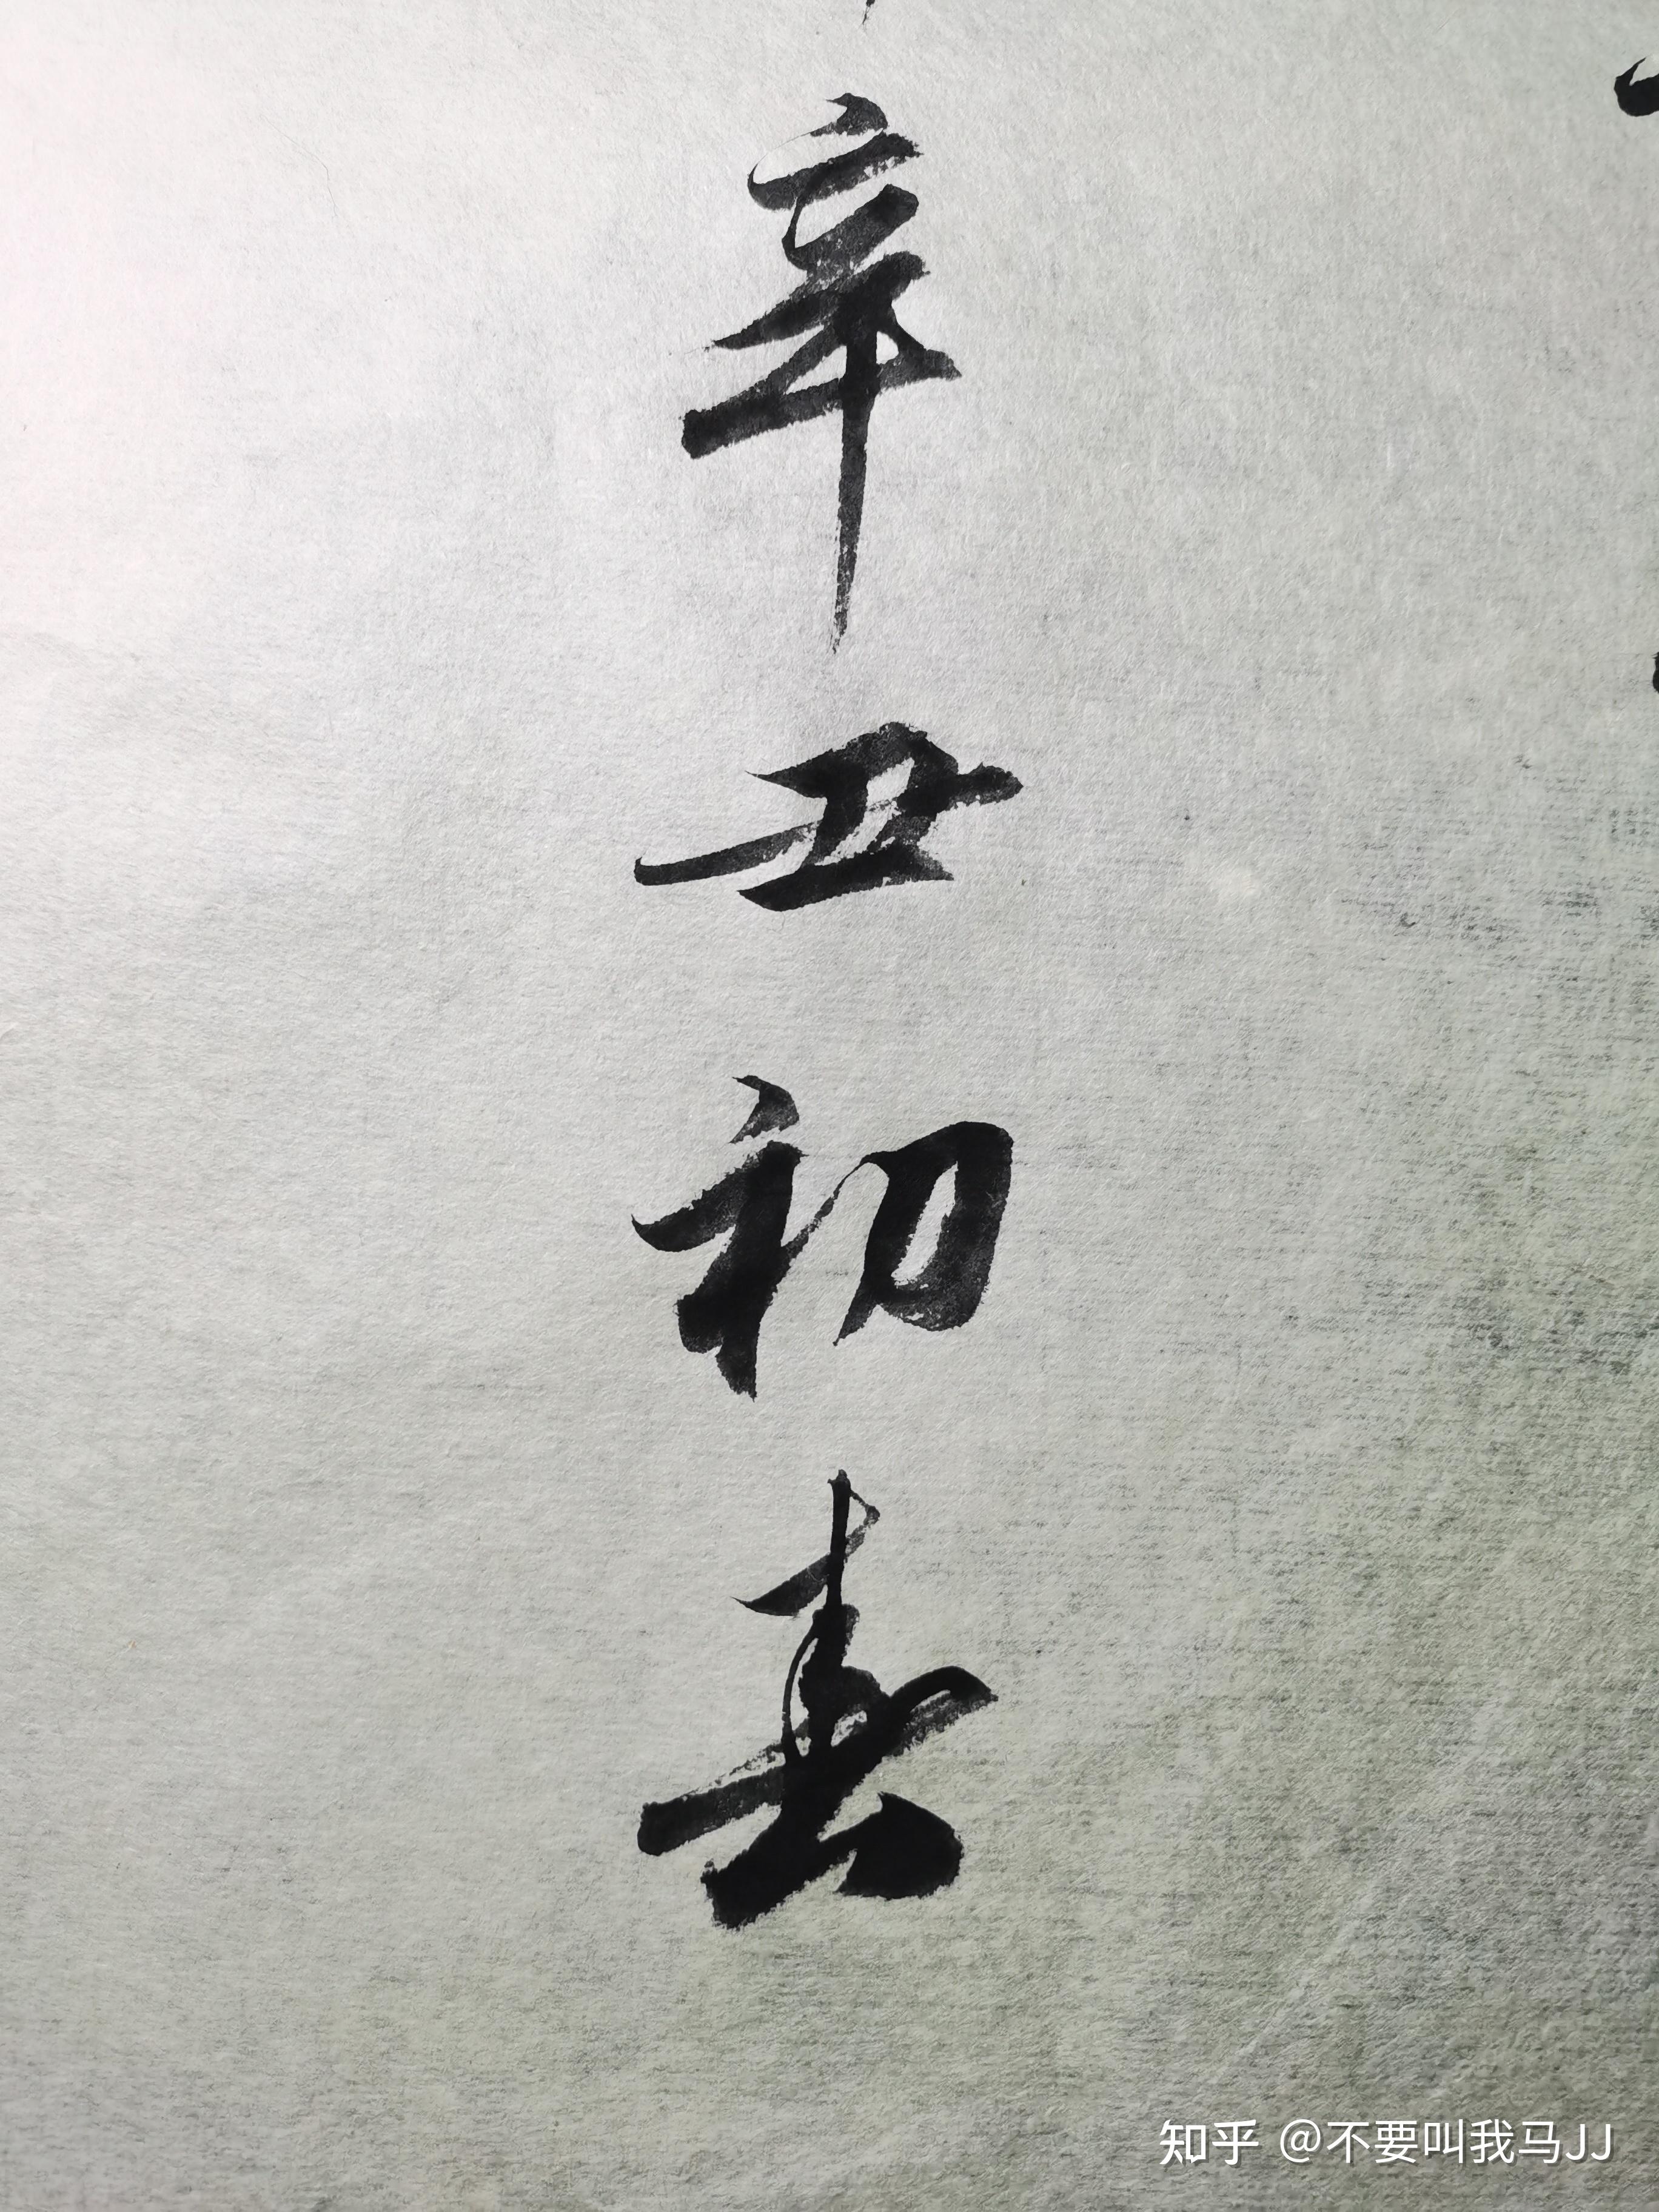 辛丑初春
知乎 @不要叫我马JJ